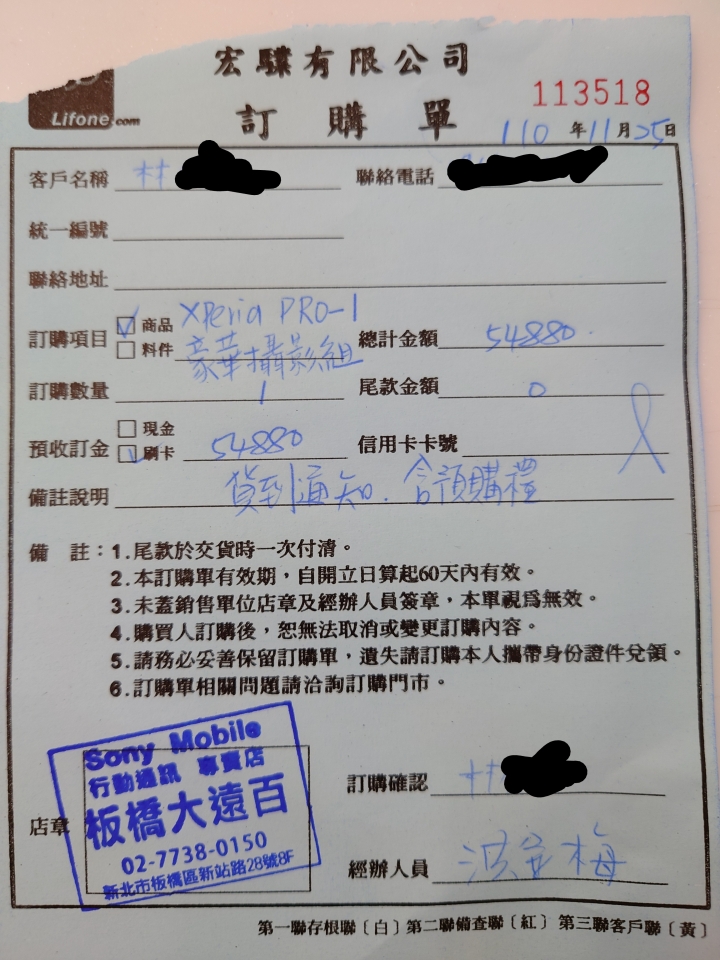 宏驜有限公司
Lifone.com
訂購單
113518
110年11月25日
客戶名稱 林 聯絡電話
統一編號
聯絡地址
訂購項目 商品 Xperia PRO-1
料件 豪華攝影組 總計金額 54880.
訂購數量 1 尾款金額 0
預收訂金 現金
刷卡 54880 信用卡卡號
備註說明 貨到通知. 含預購禮
備 註：1.尾款於交貨時一次付清。
2.本訂購單有效期，自開立日算起60天內有效。
3.未蓋銷售單位店章及經辦人員簽章，本單視爲無效。
4.購買人訂購後，恕無法取消或變更訂購內容。
5.請務必妥善保留訂購單，遺失請訂購本人攜帶身份證件兌領。
6.訂購單相關問題請洽詢訂購門市。
店章
Sony Mobile
行動通訊 專賣店
板橋大遠百
02-7738-0150
新北市板橋區新站路28號8F
訂購確認 林
經辦人員 梅
第一聯存根聯〔白〕第二聯備查聯〔紅〕第三聯客戶聯〔黃〕